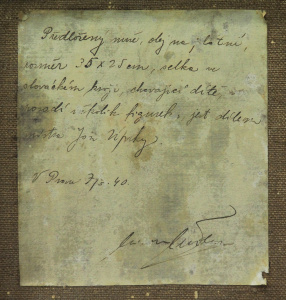 Předložený mně, olej na plátně,
rozměr 35 x 25 cm, selka ve
slováckém kroji, chovající dítě,
pozadí několik figurek, jest dílem
mistra Joži Uprky
V Praze 7/3. 40.